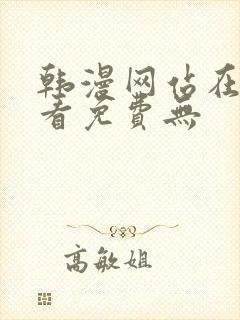 韩漫网佔在
看免費無
高敏姐